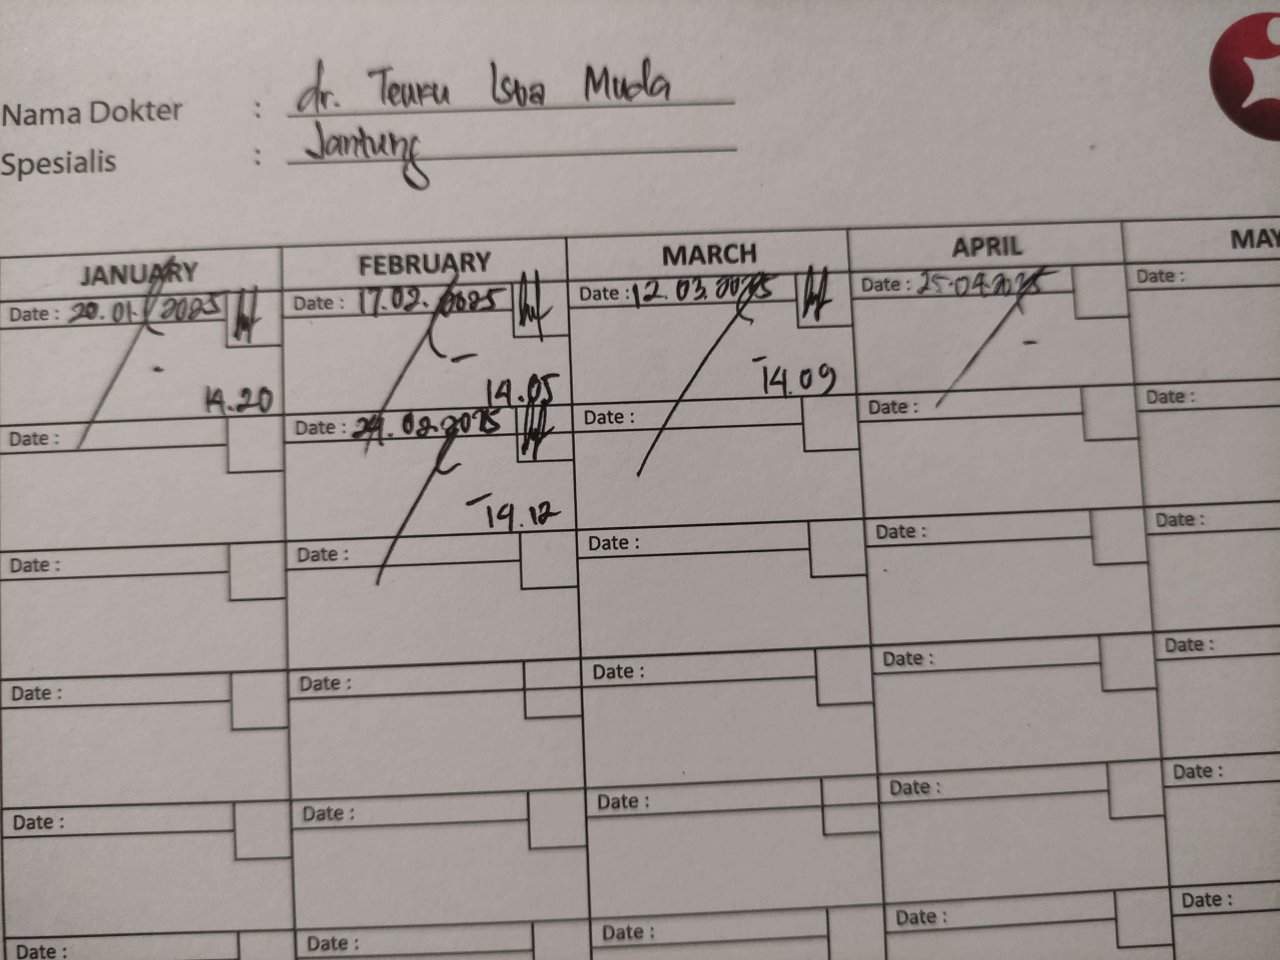 Nama Dokter : dr. Teuku Isba Muda
Spesialis : Jantung
JANUARY FEBRUARY MARCH APRIL MAY
Date : 20.01.2025 Date : 17.02.2025 Date : 12.03.2025 Date : 25.04.2025 Date :
14.20 14.05 14.09
Date : Date : 24.02.2025 Date : Date : Date :
14.12
Date : Date : Date : Date : Date :
Date : Date : Date : Date : Date :
Date : Date : Date : Date : Date :
Date : Date : Date : Date : Date :